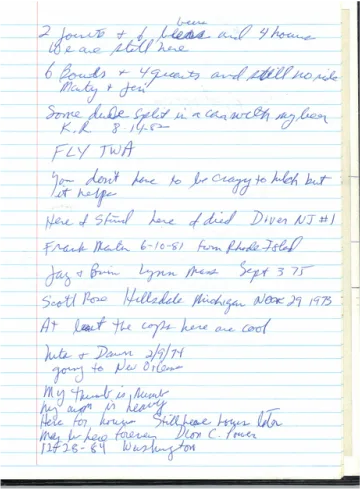 2 Joints + 6 beers and 4 hours
We are still here
6 Bowls + 4 quarts and still no ride
Marty + Jen
Some dude split in a car with my beer
K.R 8-14-82
FLY TWA
You don't have to be crazy to hitch but
it helps
Here I Stand here I died Diver NJ #1
Frank Martin 6-10-81 from Rhode Island
Jay + Brian Lynn Mass Sept 3 75
Scott Rose Hillsdale Michigan 29 1973
At least the cops here are cool
+ Dawn 2/9/74
going to New Orleans
My thumb is Numb
my arm is heavy
Here for hours Still here hours later
May be here forever C. Power
12-28-84 Washington